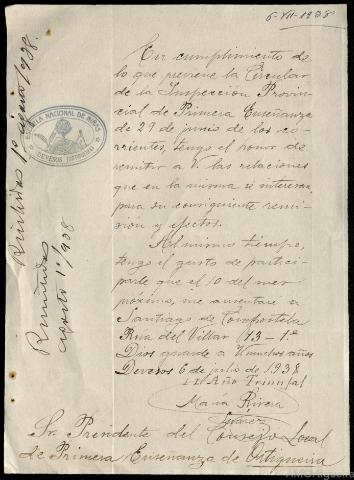 6-VII-1938
En cumplimiento de
lo que previene la Circular
de la Inspección Provin-
cial de Primera Enseñanza
de 29 de junio de los co-
rrientes, tengo el honor de
remitir a V. las relaciones
que en la misma se interesan,
para su consiguiente remi-
sión y efectos.
Al mismo tiempo,
tengo el gusto de partici-
parle que el 10 del mes
próximo, me ausentaré a
Santiago de Compostela
Rua del Villar 13-1º
Dios guarde a V. muchos años
Devesos 6 de julio de 1938
II Año Triunfal
María Rivera
Suárez
Sr. Presidente del Consejo Local
de Primera Enseñanza de Ortigueira
NACIONAL DE NIÑAS
DEVESOS (ORTIGUEIRA)
Recibidas 1º agosto/938.
Remitidas
agosto 1º/938